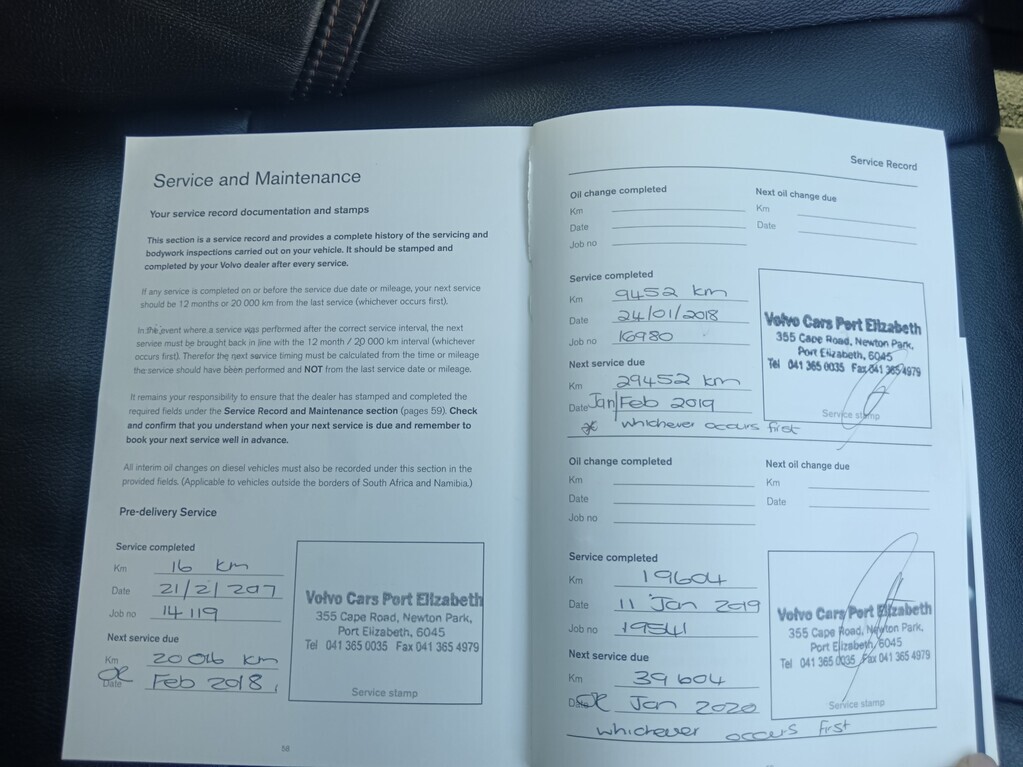 Service and Maintenance
Your service record documentation and stamps
This section is a service record and provides a complete history of the servicing and
bodywork inspections carried out on your vehicle. It should be stamped and
completed by your Volvo dealer after every service.
If any service is completed on or before the service due date or mileage, your next service
should be 12 months or 20 000 km from the last service (whichever occurs first).
In the event where a service was performed after the correct service interval, the next
service must be brought back in line with the 12 month / 20 000 km interval (whichever
occurs first). Therefor the next service timing must be calculated from the time or mileage
the service should have been performed and NOT from the last service date or mileage.
It remains your responsibility to ensure that the dealer has stamped and completed the
required fields under the Service Record and Maintenance section (pages 59). Check
and confirm that you understand when your next service is due and remember to
book your next service well in advance.
All interim oil changes on diesel vehicles must also be recorded under this section in the
provided fields. (Applicable to vehicles outside the borders of South Africa and Namibia.)
Pre-delivery Service
Service completed
Km 16 km
Date 21/2/207
Job no 14119
Next service due
Km 20016 km
OR
Date Feb 2018
Volvo Cars Port Elizabeth
355 Cape Road, Newton Park,
Port Elizabeth, 6045
Tel 041 365 0035 Fax 041 365 4979
Service stamp
Service Record
Oil change completed
Km
Date
Job no
Next oil change due
Km
Date
Service completed
Km 9452 km
Date 24/01/2018
Job no 16980
Next service due
Km 29452 km
Date Jan/Feb 2019
whichever occurs first
Volvo Cars Port Elizabeth
355 Cape Road, Newton Park,
Port Elizabeth, 6045
Tel 041 365 0035 Fax 041 365 4979
Service stamp
Oil change completed
Km
Date
Job no
Next oil change due
Km
Date
Service completed
Km 19604
Date 11 Jan 2019
Job no 19541
Next service due
Km 39604
Date OR Jan 2020
whichever occurs first
Volvo Cars Port Elizabeth
355 Cape Road, Newton Park,
Port Elizabeth, 6045
Tel 041 365 0035 Fax 041 365 4979
Service stamp